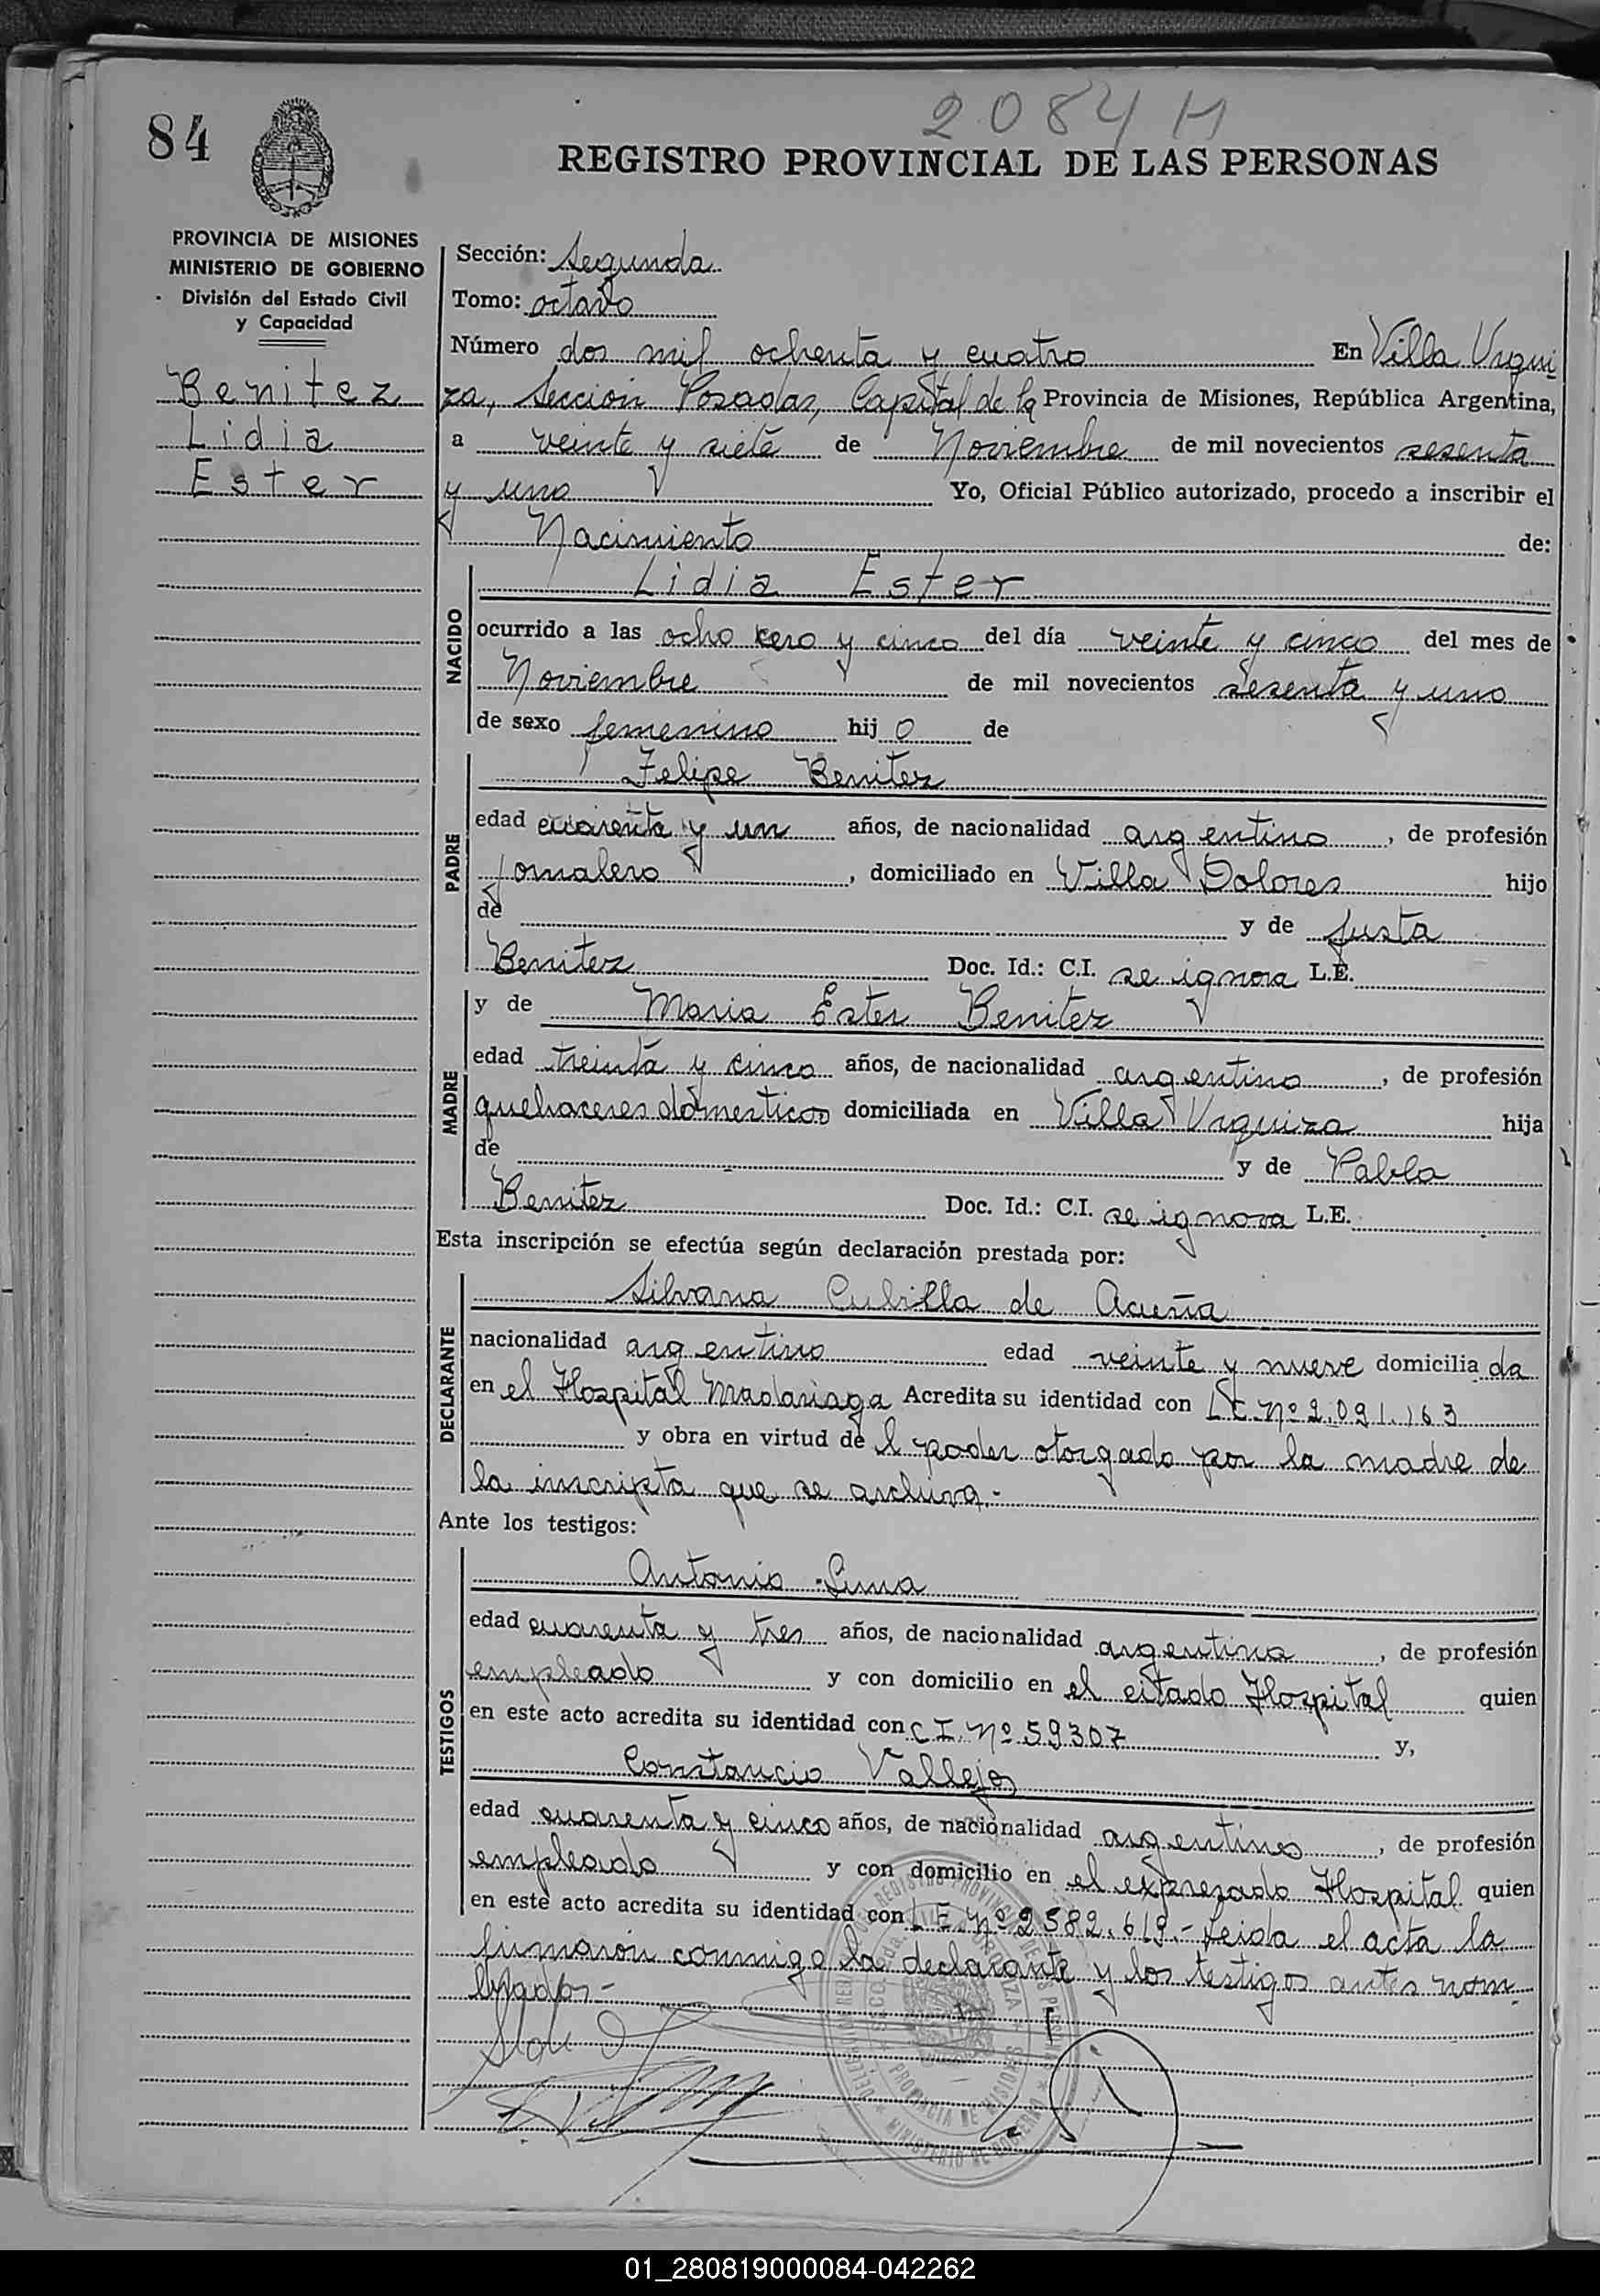 2084 M
84
REGISTRO PROVINCIAL DE LAS PERSONAS
PROVINCIA DE MISIONES
MINISTERIO DE GOBIERNO
División del Estado Civil
y Capacidad
Benitez
Lidia
Ester
Sección: Segunda
Tomo: octavo
Número dos mil ochenta y cuatro En Villa Urqui
za, Sección Posadas, Capital de la Provincia de Misiones, República Argentina,
a veinte y siete de Noviembre de mil novecientos sesenta
y uno Yo, Oficial Público autorizado, procedo a inscribir el
Nacimiento de:
NACIDO
Lidia Ester
ocurrido a las ocho cero y cinco del día veinte y cinco del mes de
Noviembre de mil novecientos sesenta y uno
de sexo femenino hijo de
PADRE
Felipe Benitez
edad cuarenta y un años, de nacionalidad argentino, de profesión
jornalero, domiciliado en Villa Dolores hijo
de y de Justa
Benitez Doc. Id.: C.I. se ignora L.E.
MADRE
y de Maria Ester Benitez
edad treinta y cinco años, de nacionalidad argentino, de profesión
quehaceres domesticos domiciliada en Villa Urquiza hija
de y de Pabla
Benitez Doc. Id.: C.I. se ignora L.E.
Esta inscripción se efectúa según declaración prestada por:
DECLARANTE
Silvana Cubilla de Acuña
nacionalidad argentino edad veinte y nueve domiciliada
en el Hospital Madariaga Acredita su identidad con L.C. Nº 2.091.163
y obra en virtud del poder otorgado por la madre de
la inscripta que se archiva.-
Ante los testigos:
TESTIGOS
Antonio Luna
edad cuarenta y tres años, de nacionalidad argentina, de profesión
empleado y con domicilio en el citado Hospital quien
en este acto acredita su identidad con C.I. Nº 59307 y,
Constancio Vallejos
edad cuarenta y cinco años, de nacionalidad argentino, de profesión
empleado y con domicilio en el expresado Hospital quien
en este acto acredita su identidad con L.E. Nº 2582.619.- Leida el acta la
firmaron conmigo la declarante y los testigos antes nom
brados.-
PROVINCIA DE MISIONES
MINISTERIO DE GOBIERNO
01_280819000084-042262